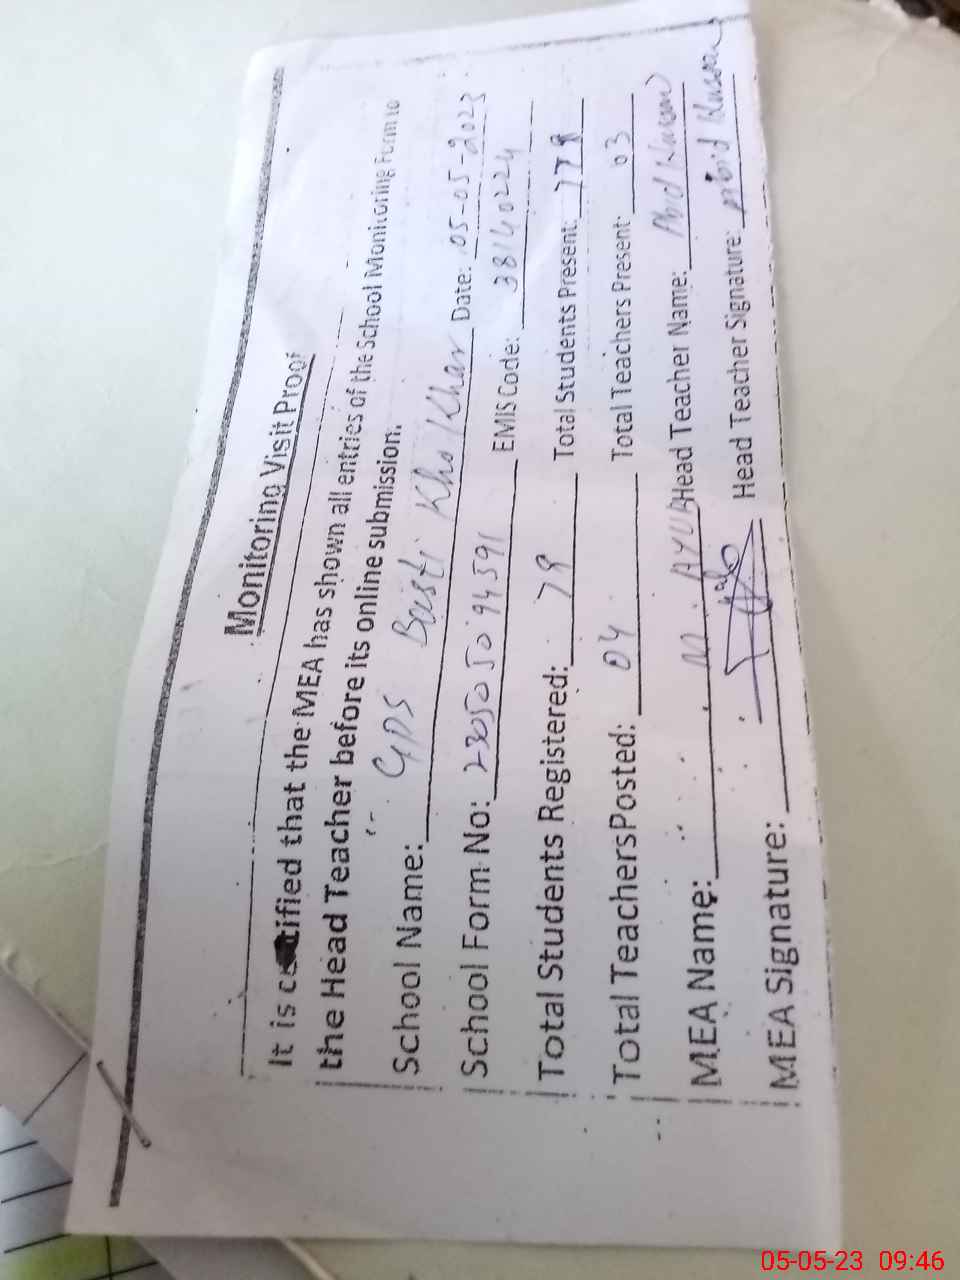 Monitoring Visit Proof
It is certified that the MEA has shown all entries of the School Monitoring Form to
the Head Teacher before its online submission.
School Name: GPS Basti Kho Khar Date: 05-05-2023
School Form No: 230505094591 EMIS Code: 38140224
Total Students Registered: 79 Total Students Present:
Total Teachers Posted: 04 Total Teachers Present: 03
MEA Name: M. AYUB Head Teacher Name: Abid
MEA Signature: Head Teacher Signature: Abid
05-05-23 09:46